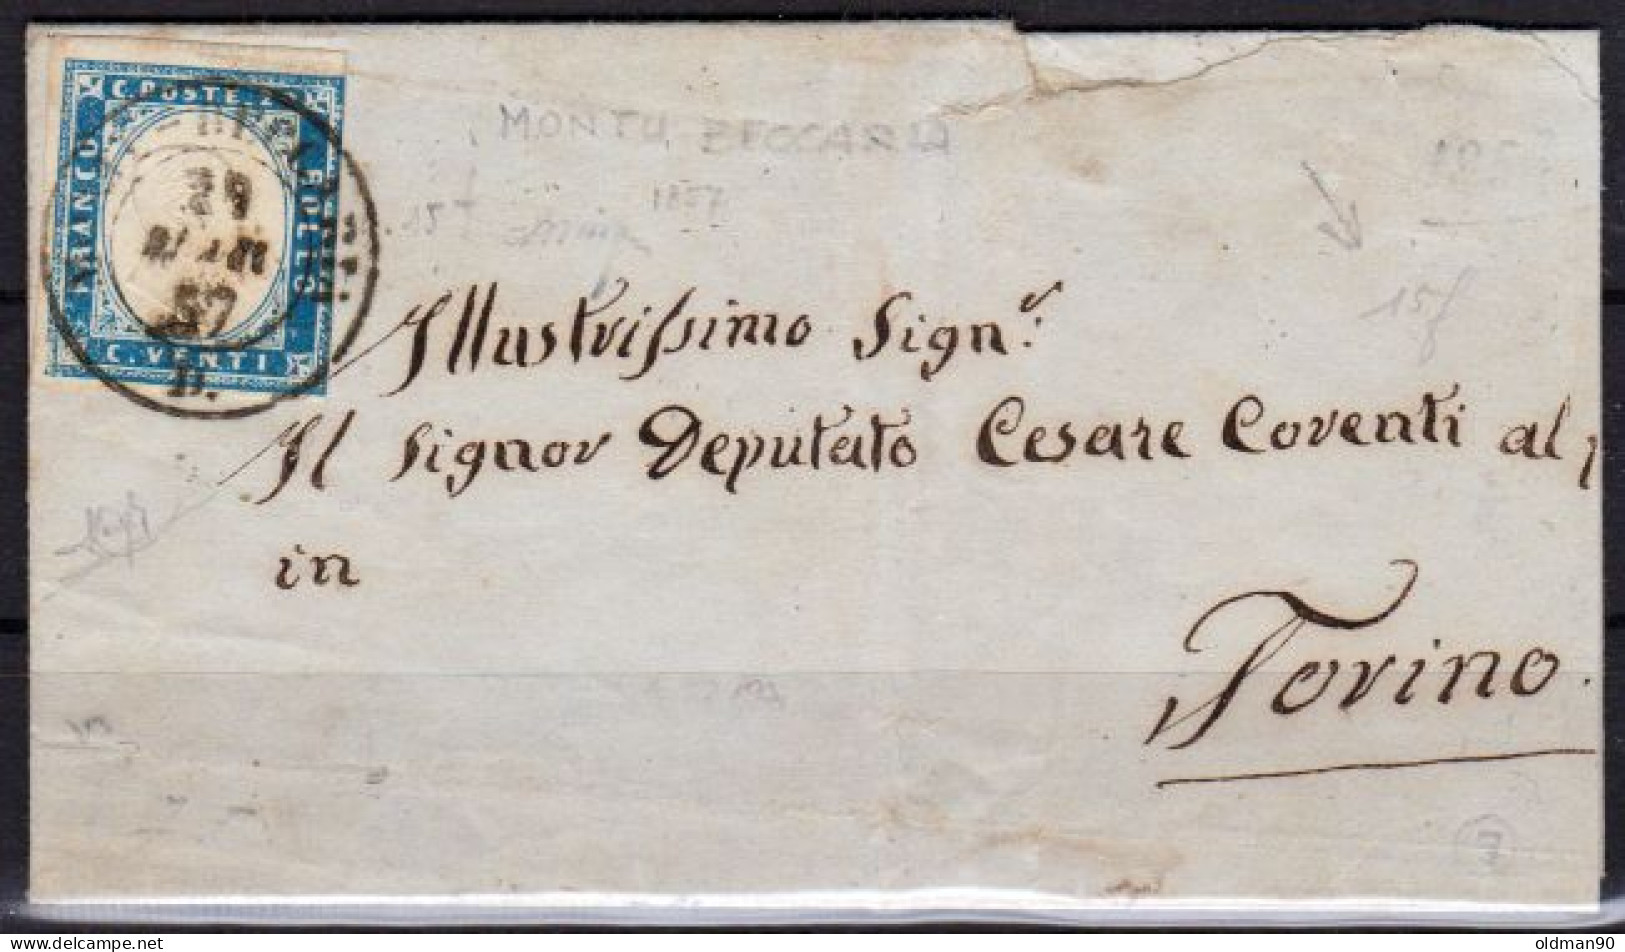 C. POSTE. 20
FRANCO
BOLLO
C. VENTI
29
57
D.
MONTU BECCARIA
1857
15f
Illustrissimo Sign.r
Il Signor Deputato Cesare Coventi al
in
Torino.
7
oldman90